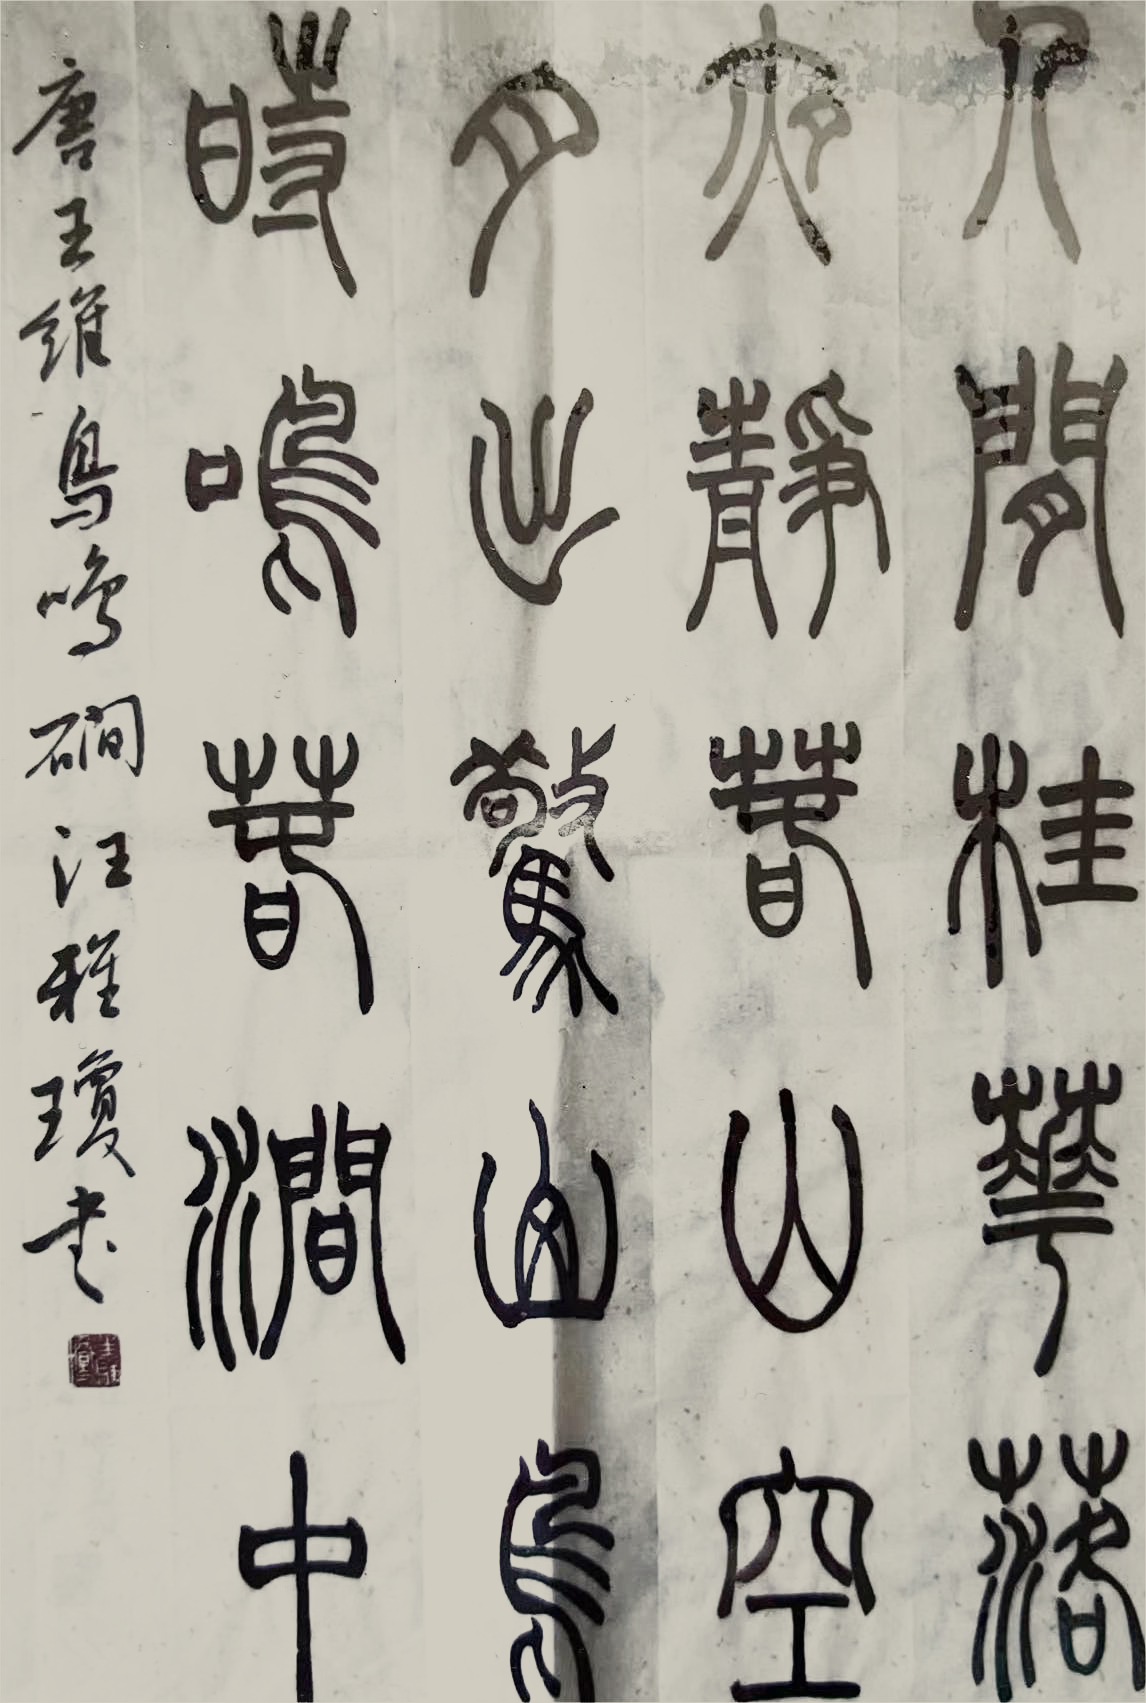 人閒桂華落
夜靜春山空
月出驚山鳥
時鳴春澗中
唐王維鳥鳴磵汪雅瓊書